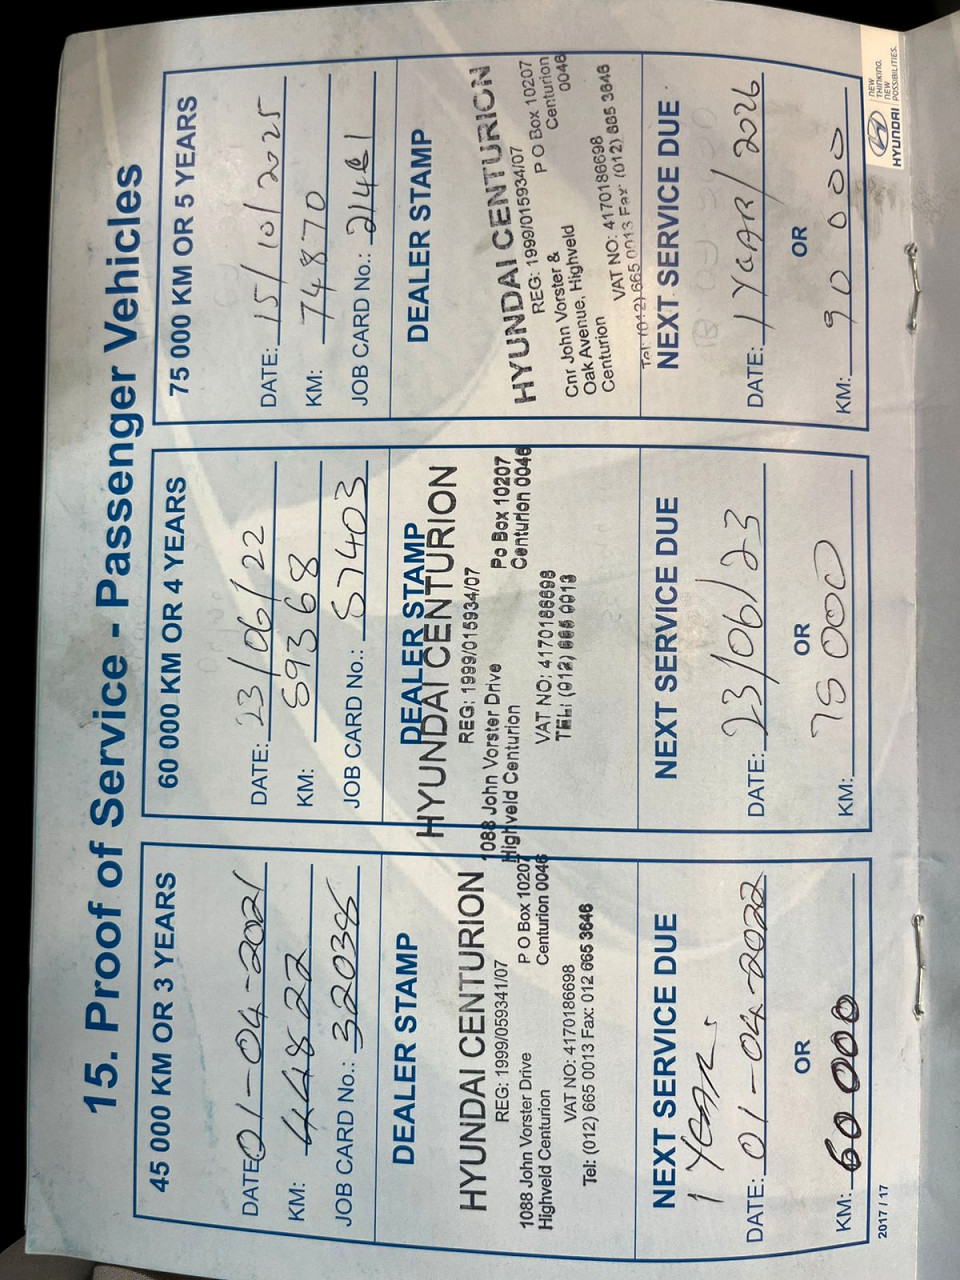 15. Proof of Service - Passenger Vehicles
45 000 KM OR 3 YEARS
DATE: 01-04-2021
KM: 44827
JOB CARD No.: 32036
DEALER STAMP
HYUNDAI CENTURION
REG: 1999/059341/07
1088 John Vorster Drive P O Box 10207
Highveld Centurion Centurion 0046
VAT NO: 4170186698
Tel: (012) 665 0013 Fax: 012 665 3646
NEXT SERVICE DUE
1 YEAR
DATE: 01-04-2022
OR
KM: 60 000
60 000 KM OR 4 YEARS
DATE: 23/06/22
KM: 59368
JOB CARD No.: 57403
DEALER STAMP
HYUNDAI CENTURION
REG: 1999/015934/07
1088 John Vorster Drive Po Box 10207
Highveld Centurion Centurion 0046
VAT NO: 4170186698
TEL: (012) 665 0013
NEXT SERVICE DUE
DATE: 23/06/23
OR
KM: 75000
75 000 KM OR 5 YEARS
DATE: 15/10/2025
KM: 74870
JOB CARD No.:
DEALER STAMP
HYUNDAI CENTURION
REG: 1999/015934/07
P O Box 10207
Cnr John Vorster & Centurion
Oak Avenue, Highveld 0046
Centurion
VAT NO: 4170186698
Tel: (012) 665 0013 Fax: (012) 665 3646
NEXT SERVICE DUE
DATE: 1 YEAR/2026
OR
KM: 90 000
2017 / 17
HYUNDAI
NEW
THINKING.
NEW
POSSIBILITIES.